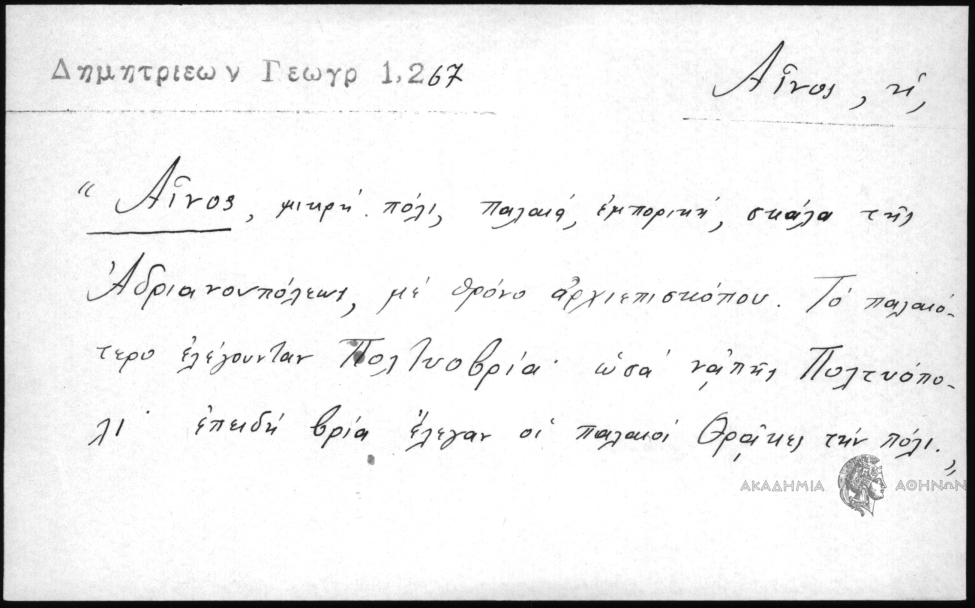 Δημητριεων Γεωγρ 1,267
Αἶνος, ἡ,
“ Αἶνος, μικρὴ πόλι, παλαιά, ἐμπορική, σκάλα τῆς
Ἀδριανουπόλεως, μέ θρόνο ἀρχιεπισκόπου. Τό παλαιό-
τερο ἐλέγουνταν Πολτυοβρία· ὡσά νἄπῃς Πολτυόπο-
λι· ἐπειδή βρία ἔλεγαν οἱ παλαιοί Θρᾷκες τήν πόλι.„
ΑΚΑΔΗΜΙΑ ΑΘΗΝΩΝ